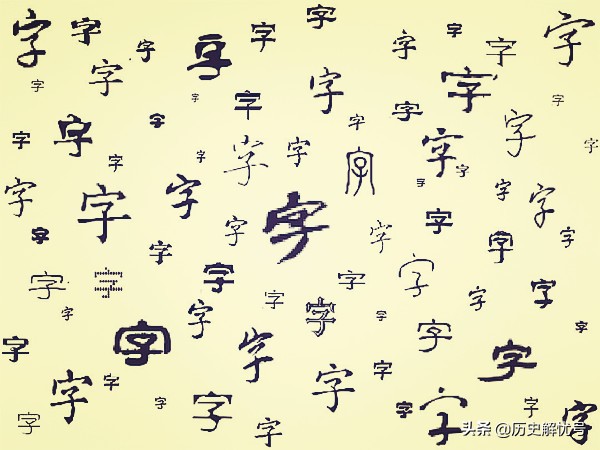 字 字 字 字 字 字 字 字 字 字
字 字 字 字 字 字 字 字
字 字 字 字 字 字 字 字 字 字 字
字 字 字 字 字 字 字 字
字 字 字 字 字 字 字 字
字 字 字 字 字 字 字 字
字 字 字 字 字 字 字 字 字 字
字 字 字 字 字 字 字 字 字 字 字 字
头条 @历史解忧号